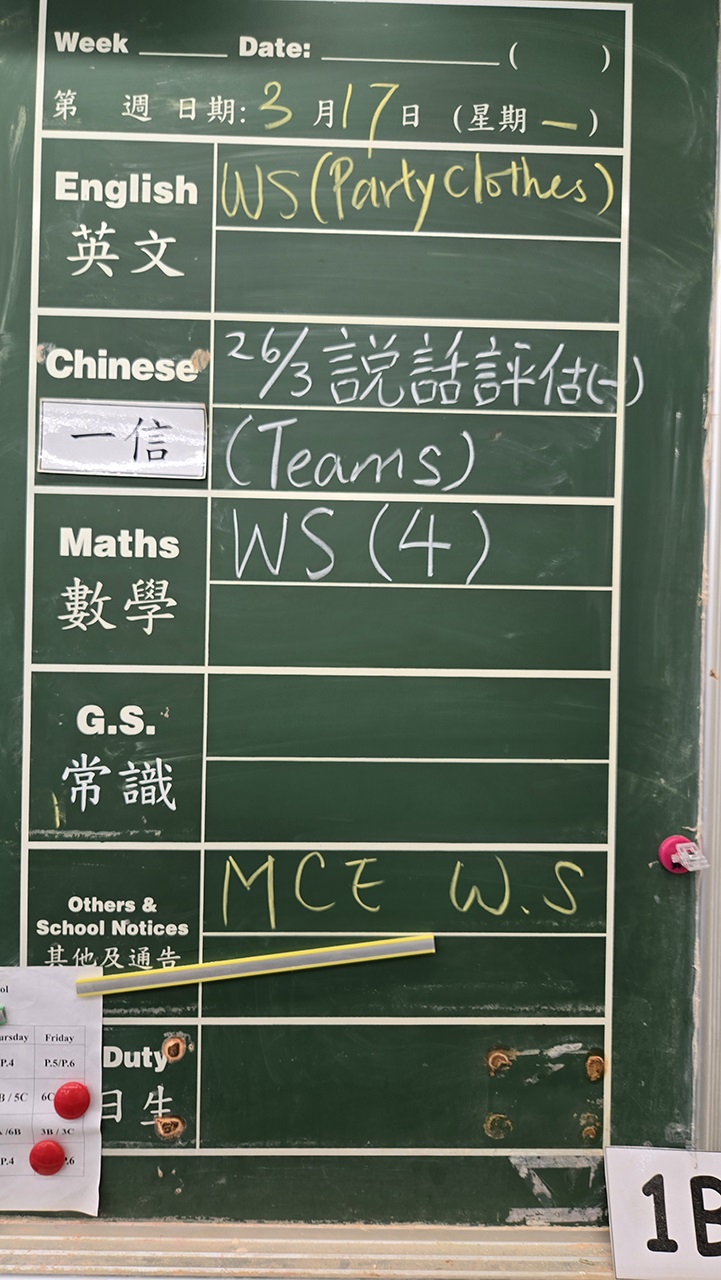 Week ______ Date: ____________ (      )
第 週 日期: 3 月 17 日 (星期 一)
English WS (Party clothes)
英文
Chinese 26/3 説話評估(一)
一信 (Teams)
Maths WS (4)
數學
G.S.
常識
Others & MCE W.S
School Notices
其他及通告
Duty
日生
ol
ursday Friday
P.4 P.5/P.6
B / 5C 6C
/6B 3B / 3C
P.4 .6
1B